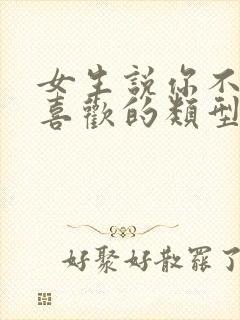 女生説你不
喜歡的類型
好聚好散罷了